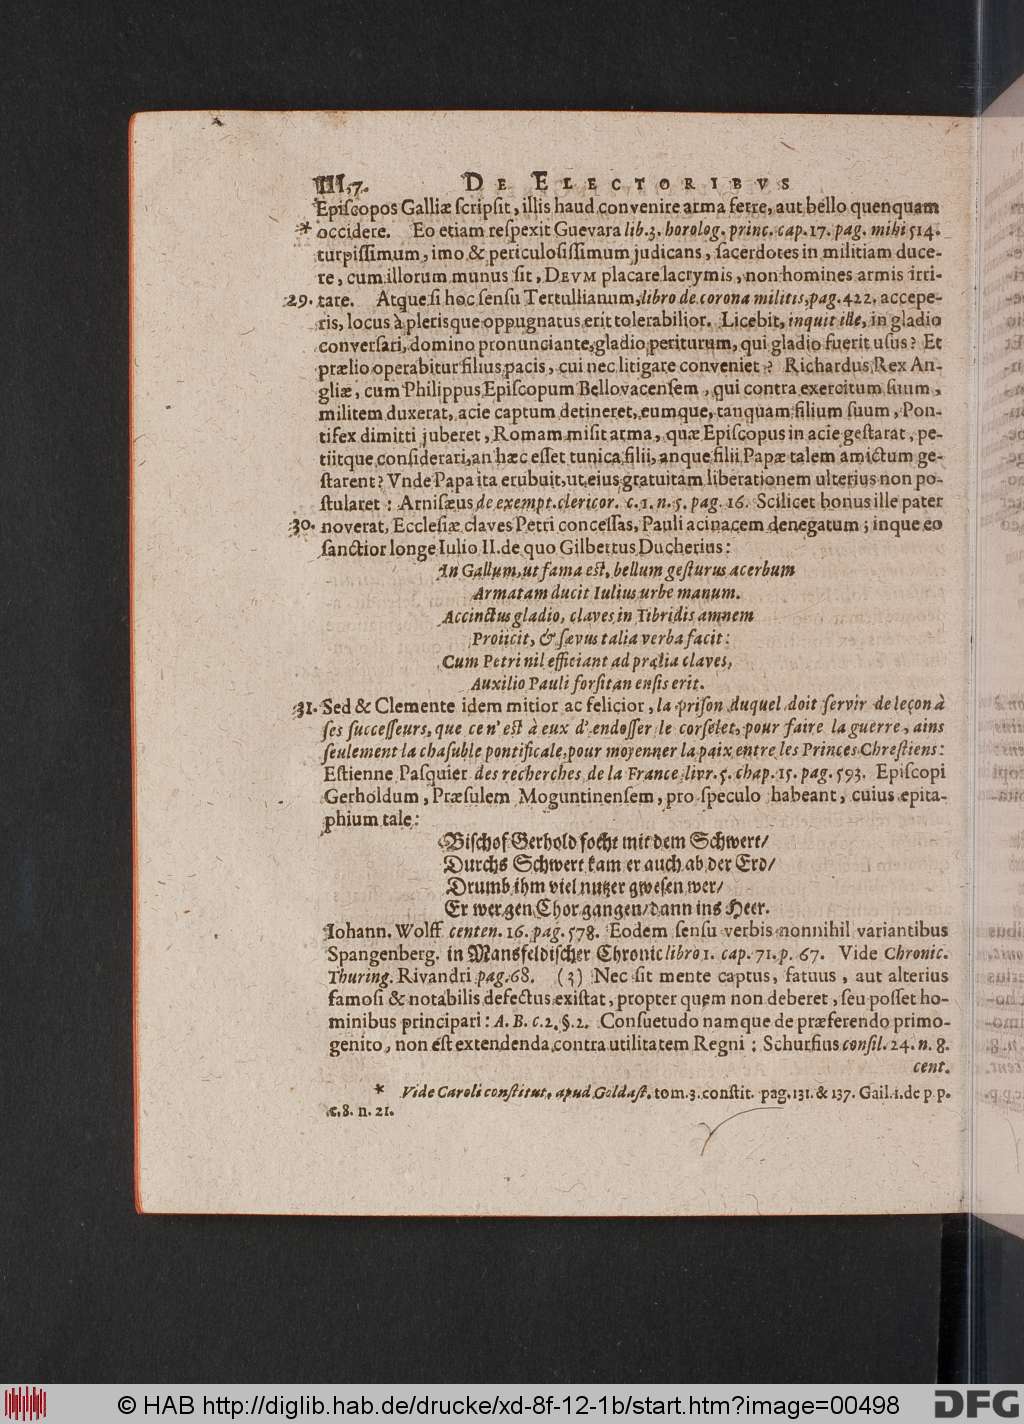 III, 7. DE ELECTORIBVS
Episcopos Galliæ scripsit, illis haud convenire arma ferre, aut bello quenquam
* occidere. Eo etiam respexit Guevara lib. 3. horolog. princ. cap. 17. pag. mihi 514.
turpissimum, imo & periculosissimum judicans, sacerdotes in militiam duce-
re, cum illorum munus sit, DEVM placare lacrymis, non homines armis irri-
29. tare. Atque si hoc sensu Tertullianum, libro de corona militis, pag. 422. accepe-
ris, locus à plerisque oppugnatus erit tolerabilior. Licebit, inquit ille, in gladio
conversari, domino pronunciante, gladio periturum, qui gladio fuerit usus? Et
prælio operabitur filius pacis, cui nec litigare conveniet? Richardus Rex An-
gliæ, cum Philippus Episcopum Bellovacensem, qui contra exercitum suum,
militem duxerat, acie captum detineret, eumque, tanquam filium suum, Pon-
tifex dimitti juberet, Romam misit arma, quæ Episcopus in acie gestarat, pe-
tiitque considerari, an hæc esset tunica filii, anque filii Papæ talem amictum ge-
starent? Vnde Papa ita erubuit, ut eius gratuitam liberationem ulterius non po-
stularet: Arnisæus de exempt. clericor. c. 1. n. 5. pag. 16. Scilicet bonus ille pater
30. noverat, Ecclesiæ claves Petri concessas, Pauli acinacem denegatum; inque eo
sanctior longe Iulio II. de quo Gilbertus Ducherius:
In Gallum, ut fama est, bellum gesturus acerbum
Armatam ducit Iulius urbe manum.
Accinctus gladio, claves in Tibridis amnem
Proiicit, & sævus talia verba facit:
Cum Petri nil efficiant ad prælia claves,
Auxilio Pauli forsitan ensis erit.
31. Sed & Clemente idem mitior ac felicior, la prison duquel doit servir de leçon à
ses successeurs, que ce n'est à eux d'endosser le corselet, pour faire la guerre, ains
seulement la chasuble pontificale, pour moyenner la paix entre les Princes Chrestiens:
Estienne Pasquier des recherches de la France livr. 5. chap. 15. pag. 593. Episcopi
Gerholdum, Præsulem Moguntinensem, pro speculo habeant, cuius epita-
phium tale:
Bischof Gerhold focht mit dem Schwert/
Durchs Schwert kam er auch ab der Erd/
Drumb ihm viel nutzer gwesen wer/
Er wer gen Chor gangen/ dann ins Heer.
Iohann. Wolff centen. 16. pag. 578. Eodem sensu verbis nonnihil variantibus
Spangenberg. in Mansfeldischer Chronic libro 1. cap. 71. p. 67. Vide Chronic.
Thuring. Rivandri pag. 68. (3) Nec sit mente captus, fatuus, aut alterius
famosi & notabilis defectus existat, propter quem non deberet, seu posset ho-
minibus principari: A. B. c. 2. §. 2. Consuetudo namque de præferendo primo-
genito, non est extendenda contra utilitatem Regni: Schurfius consil. 24. n. 8.
cent.
* Vide Caroli constitut. apud Goldast. tom. 3. constit. pag. 131. & 137. Gail. 1. de p. p.
c. 8. n. 21.
© HAB http://diglib.hab.de/drucke/xd-8f-12-1b/start.htm?image=00498
DFG